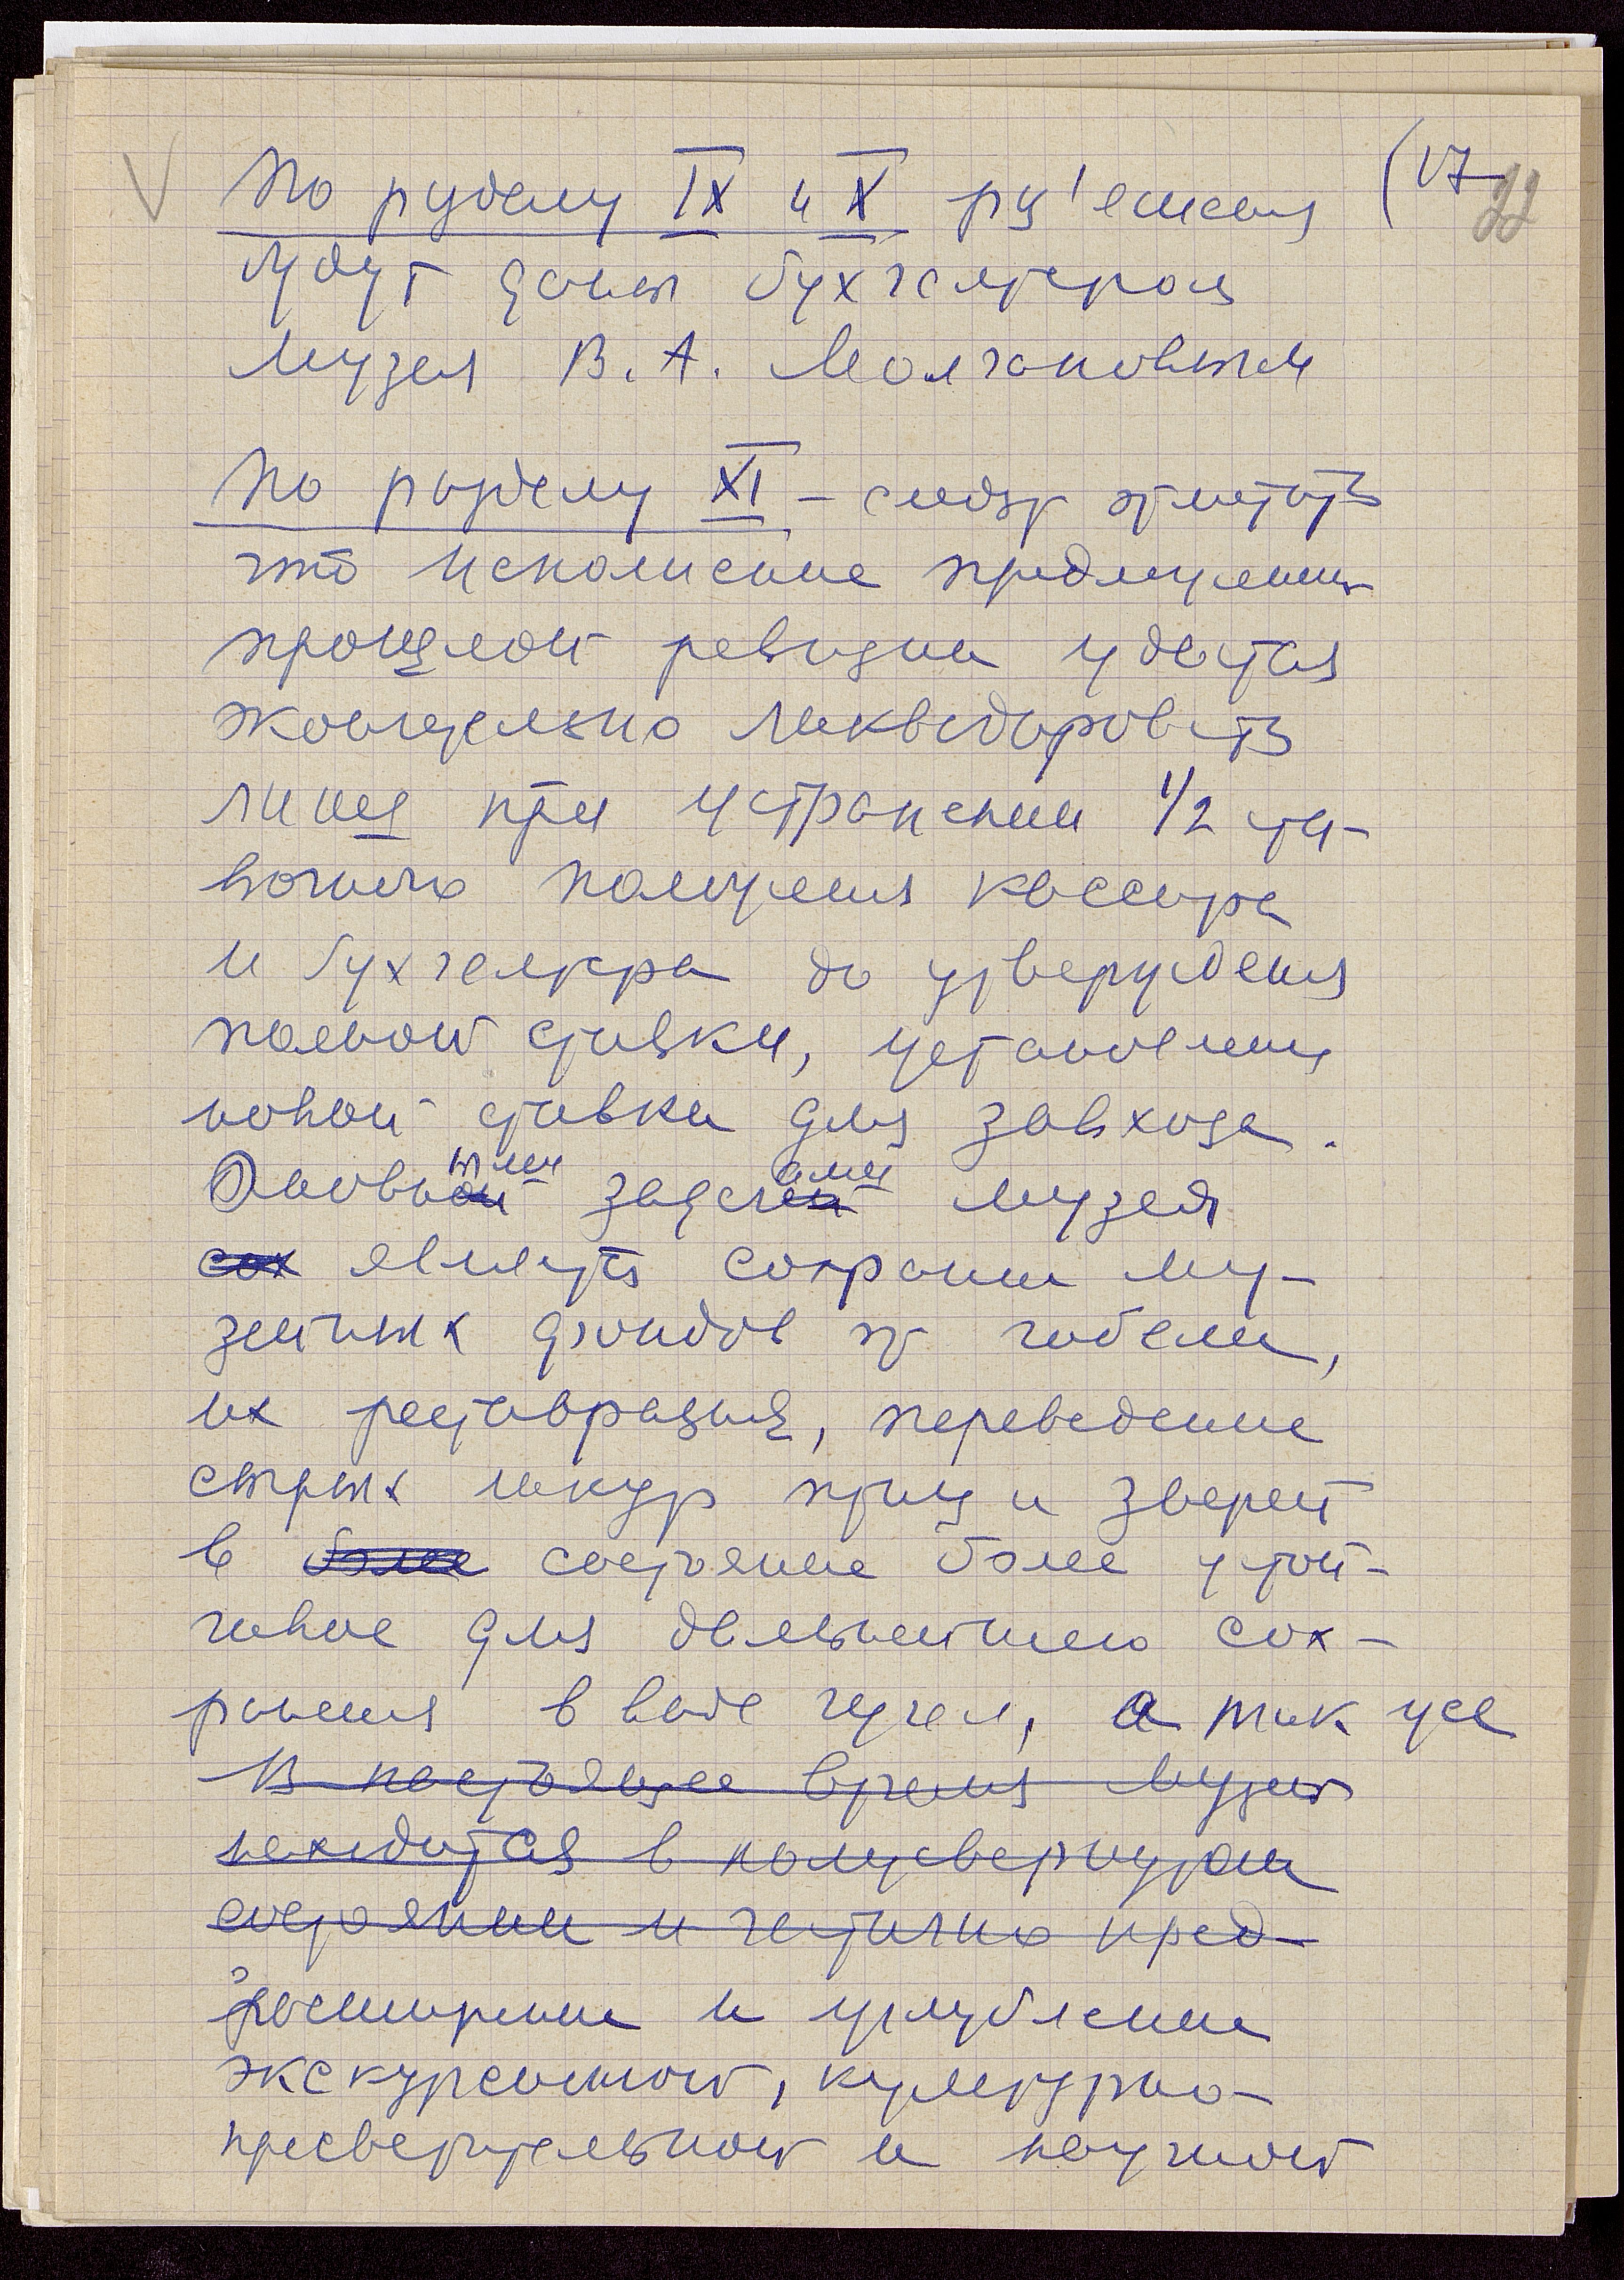 По разделу IX и X раз'яснения (17 22
будут даны бухгалтером
музея В. А. Молчановым
По разделу XI – следует отметить
что исполнение предложения
прошлой ревизии удастся
окончательно ликвидировать
лишь при устранении 1/2 ста-
вочного положения кассира
и бухгалтера до утверждения
полной ставки, установлении
новой ставки для завхоза.
Основными задачами музея
сох являются сохранение му-
зейных фондов от гибели,
их реставрация, переведение
сырых шкур птиц и зверей
в более состояние более устой-
чивое для дальнейшего сох-
ранения в виде чучел, а так же
В настоящее время музей
находится в полусвернутом
состоянии и частично пред-
расширение и углубление
экскурсионной, культурно-
просветительной и научной